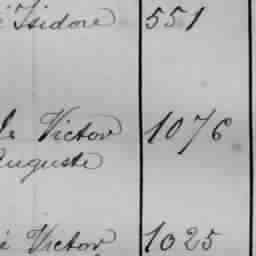 Isidore 551
Victor 1076
Auguste
Victor 1025